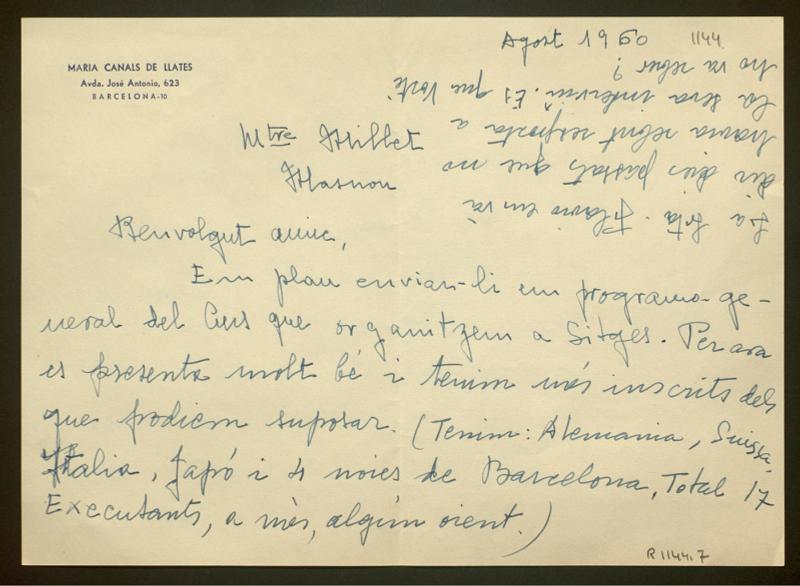 MARIA CANALS DE LLATES
Avda. José Antonio, 623
BARCELONA-10
Agost 1960
1144
Mtre Millet
Masnou
Benvolgut amic,
Em plau enviar-li un programa ge-
neral del Curs que organitzem a Sitges. Per ara
es presenta molt bé i tenim més inscrits dels
que podiem suposar. (Tenim: Alemania, Suissa,
Italia, Japó i 4 noies de Barcelona, Total 17
Executants, a més, algún oient.)
La Srta. Flavio em va
dir dies passats que no
havia rebut resposta a
la seva interviu. Es que Vostè
no va rebre?
R 1144.7